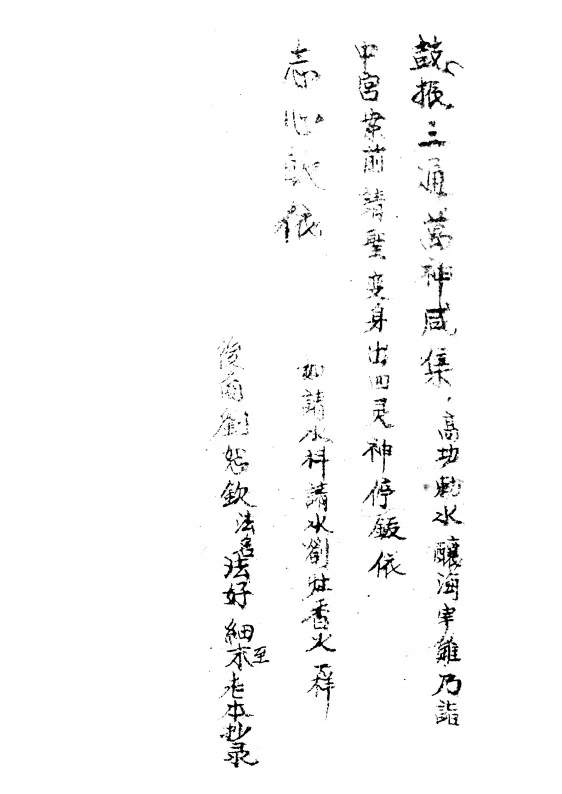 鼓振三通萬神咸集，高功勅水釀海宰雞乃詣
中宮案前請聖变身出四灵神停皈依
志心皈依
如請水科請水劄灶香火一样
後面劉恕欽法名法好細末至老本抄录